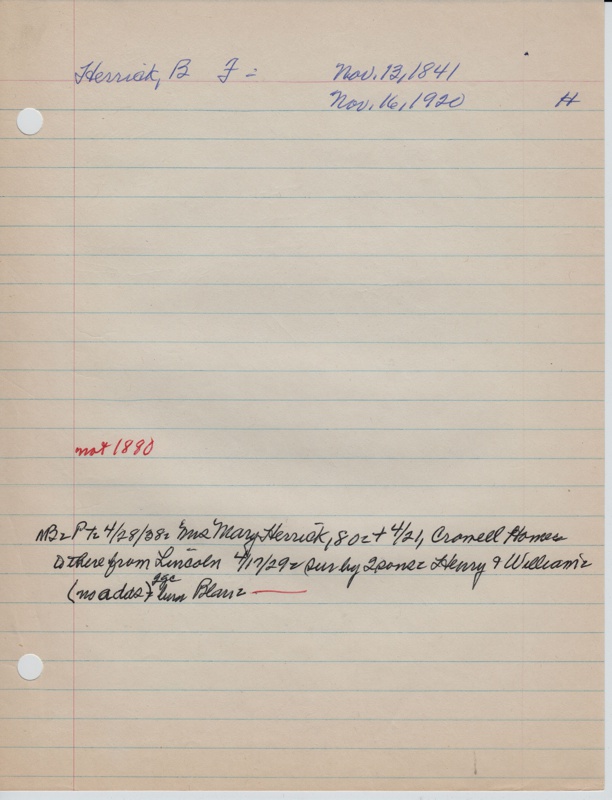 Herrick, B F = Nov. 13, 1841
Nov. 16, 1920 H
not 1880
NB= Pt= 4/28/38= "Mrs Mary Herrick, 80=+ 4/21, Cromwell Home=
there from Lincoln 4/17/29= sur by 2 sons= Henry & William"=
(no adds + 2gc Blair=